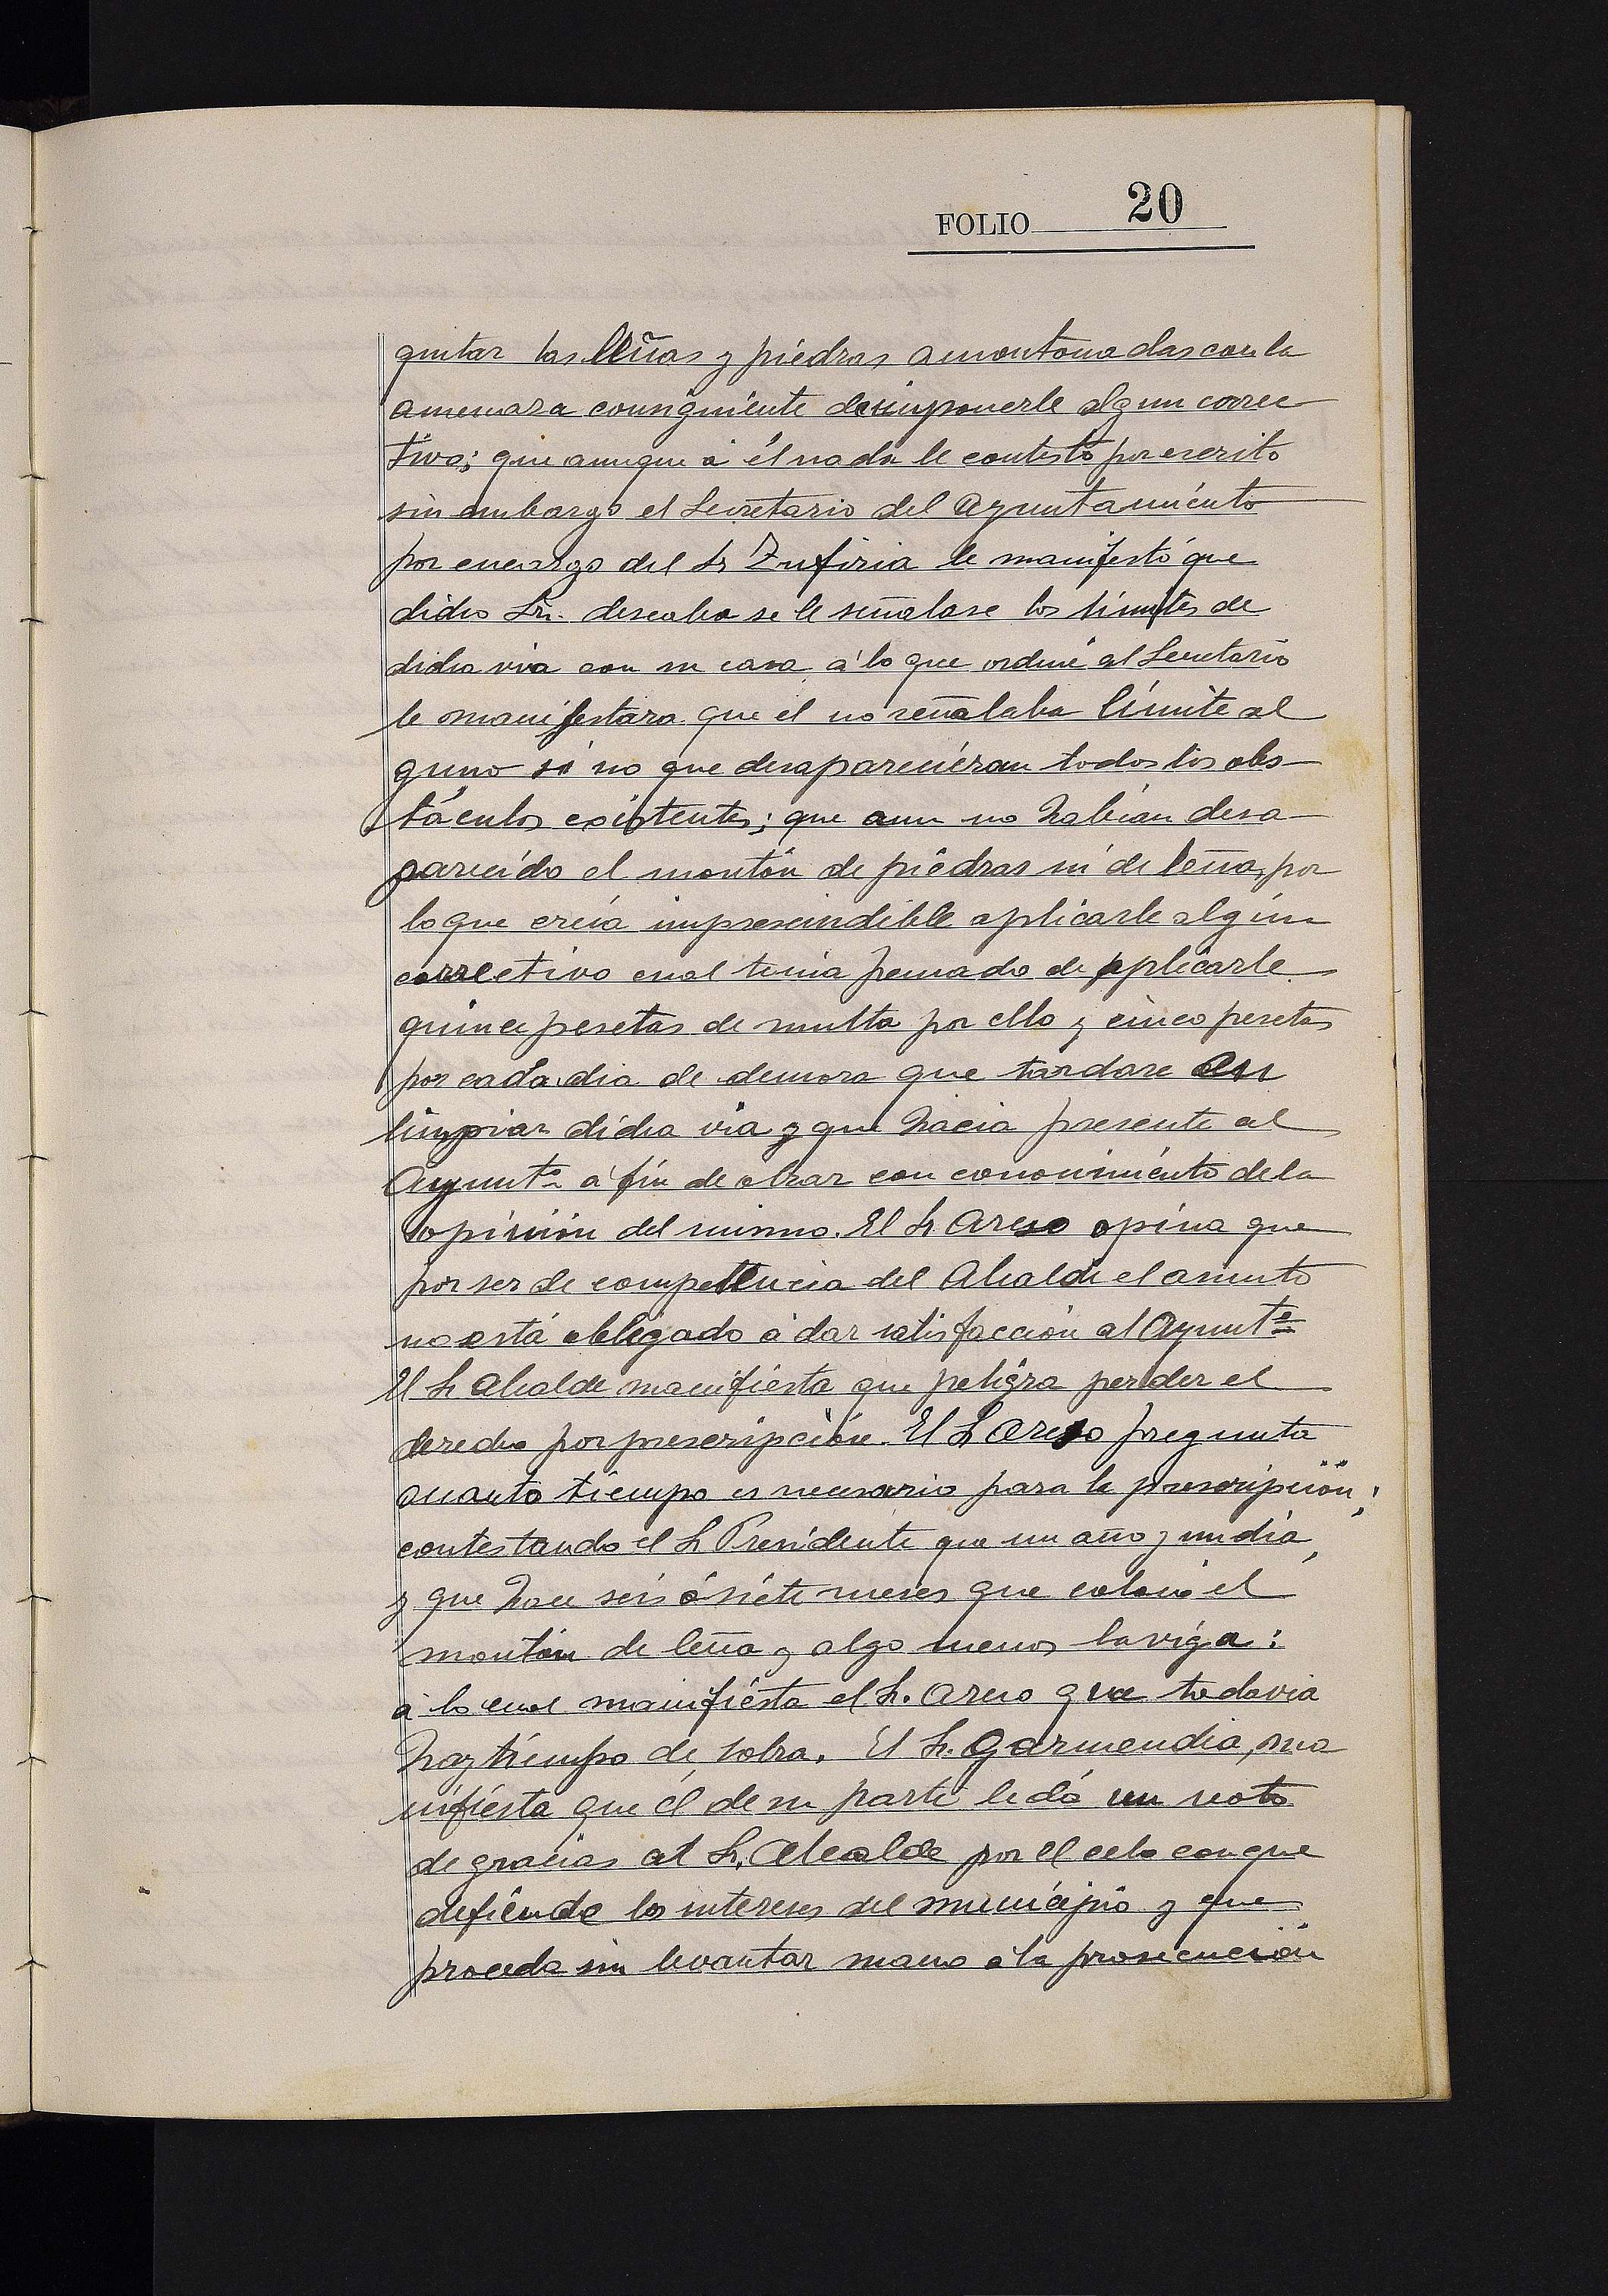 FOLIO 20
quitar las leñas y piedras amontonadas con la
amenaza consiguiente de imponerle algun correc
tivo; que aunque á él nada le contestó por escrito
sin embargo el Secretario del Ayuntamiento
por encargo del Sr Zufiria le manifestó que
dicho Sr. deseaba se le señalase los límites de
dicha via con su casa á lo que ordené al Secretario
le manifestara que el no señalaba límite al
guno si no que desaparecieran todos los obs-
táculos existentes; que aun no habían desa-
parecido el montón de piedras ni de leña, por
lo que creía imprescindible aplicarle algún
correctivo cual tenia pensado de aplicarle
quince pesetas de multa por ello y cinco pesetas
por cada dia de demora que tardare en
limpiar dicha via y que hacia presente al
Ayuntº á fin de obrar con conocimiento de la
opinión del mismo. El Sr Areso opina que
por ser de competencia del Alcalde el asunto
no está obligado á dar satisfacción al Ayuntº
El Sr Alcalde manifiesta que peligra perder el
derecho por prescripción. El Sr Areso pregunta
cuanto tiempo es necesario para la prescripción;
contestando el Sr Presidente que un año y un día,
y que hace seis ó siete meses que colocó el
montón de leña y algo menos la viga:
á lo cual manifiesta el Sr. Areso que todavia
hay tiempo de sobra. El Sr. Garmendia, ma
nifiesta que él de su parte le dá un voto
de gracias al Sr. Alcalde por el celo con que
defiende los intereses del municipio y que
proceda sin levantar mano á la prosecución